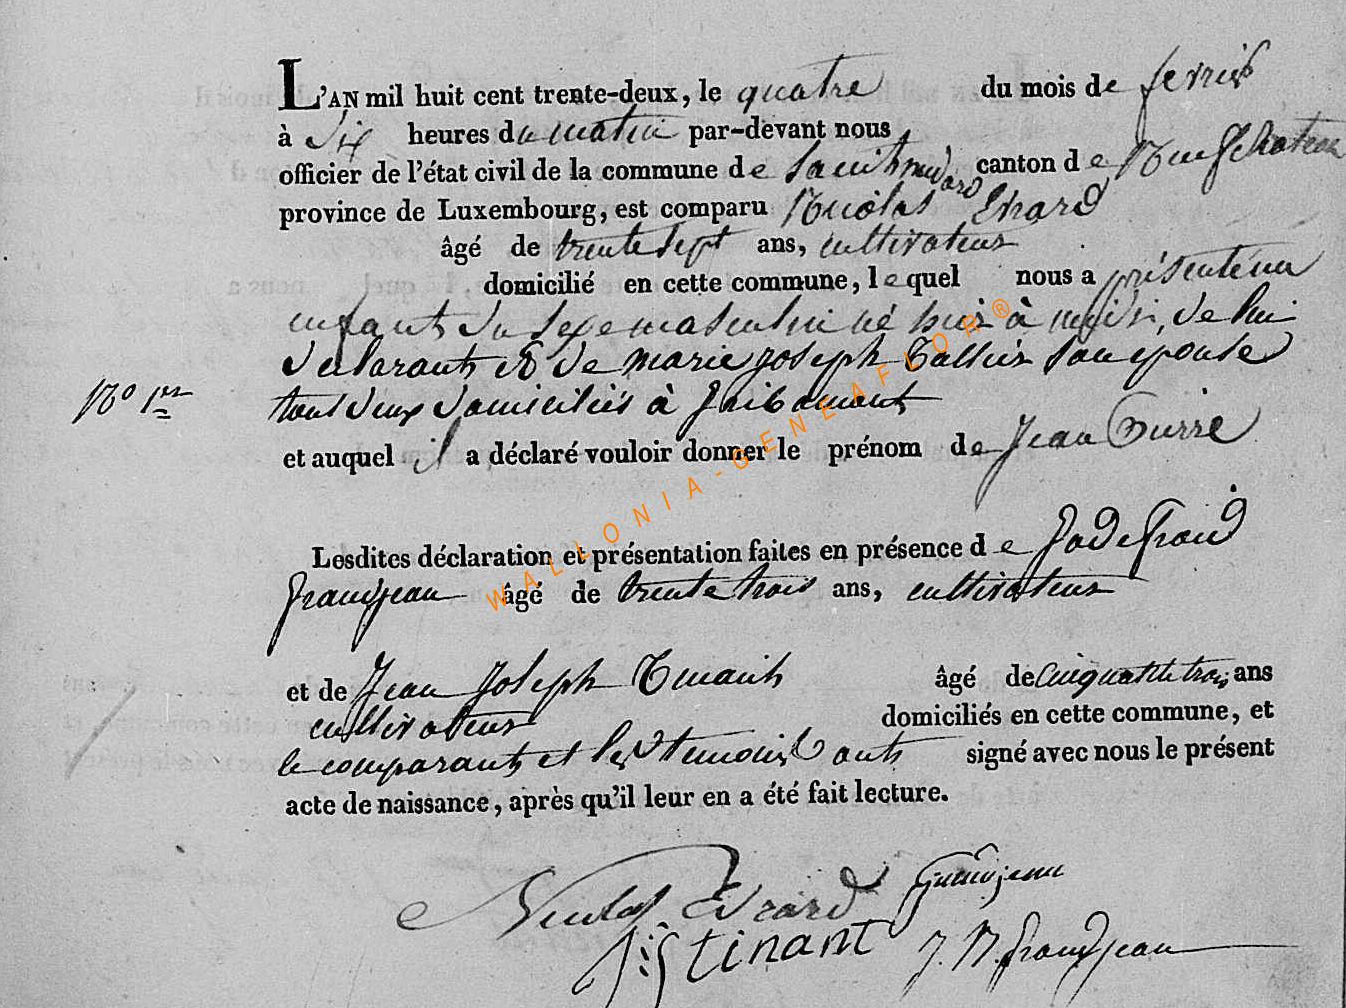 L'AN mil huit cent trente-deux, le quatre du mois de fevrier
à Six heures du matin par-devant nous
officier de l'état civil de la commune de Saint medard canton de Neufchateau
province de Luxembourg, est comparu Nicolas Evrard
âgé de trente Sept ans, cultivateur
domicilié en cette commune, lequel nous a présenté un
enfant du Sexe masculin né hier à midi, de lui
declarant et de marie joseph son epouse
tout deux domiciliés à gribomont
No 1er
et auquel il a déclaré vouloir donner le prénom de Jean Pierre
Lesdites déclaration et présentation faites en présence de
grandjean âgé de trente trois ans, cultivateur
et de Jean joseph âgé de cinquante trois ans
cultivateur domiciliés en cette commune, et
le comparant et les temoins ont signé avec nous le présent
acte de naissance, après qu'il leur en a été fait lecture.
Nicolas Evrard Grandjean
tinant J. N. grandjean
WALLONIA-GENEAFLOR®